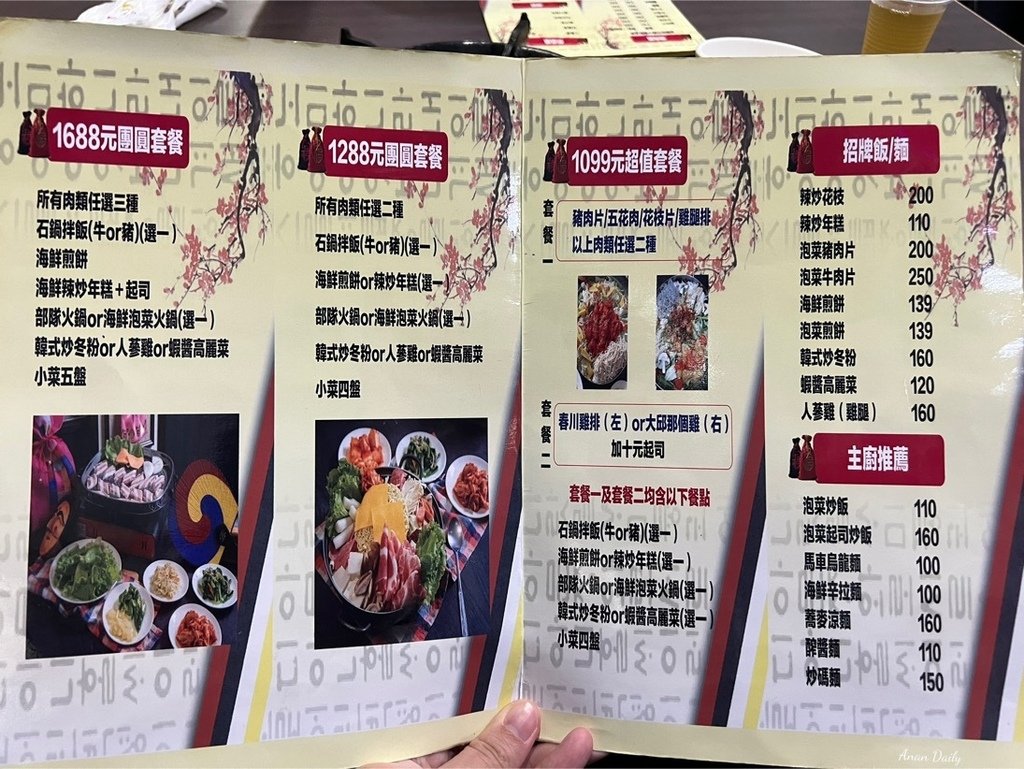 1688元團圓套餐
所有肉類任選三種
石鍋拌飯(牛or豬)(選一)
海鮮煎餅
海鮮辣炒年糕+起司
部隊火鍋or海鮮泡菜火鍋(選一)
韓式炒冬粉or人蔘雞or蝦醬高麗菜
小菜五盤
1288元團圓套餐
所有肉類任選二種
石鍋拌飯(牛or豬)(選一)
海鮮煎餅or辣炒年糕(選一
部隊火鍋or海鮮泡菜火鍋(選一)
韓式炒冬粉or人蔘雞or蝦醬高麗菜
小菜四盤
1099元超值套餐
套餐一
豬肉片/五花肉/花枝片/雞腿排
以上肉類任選二種
套餐二
春川雞排(左)or大邱那個雞(右)
加十元起司
套餐一及套餐二均含以下餐點
石鍋拌飯(牛or豬)(選一)
海鮮煎餅or辣炒年糕(選一)
部隊火鍋or海鮮泡菜火鍋(選一)
韓式炒冬粉or蝦醬高麗菜(選一)
小菜四盤
招牌飯/麵
辣炒花枝 200
辣炒年糕 110
泡菜豬肉片 200
泡菜牛肉片 250
海鮮煎餅 139
泡菜煎餅 139
韓式炒冬粉 160
蝦醬高麗菜 120
人蔘雞(雞腿) 160
主廚推薦
泡菜炒飯 110
泡菜起司炒飯 160
馬車烏龍麵 100
海鮮辛拉麵 100
蕎麥涼麵 160
酢醬麵 110
炒碼麵 150
Anan Daily